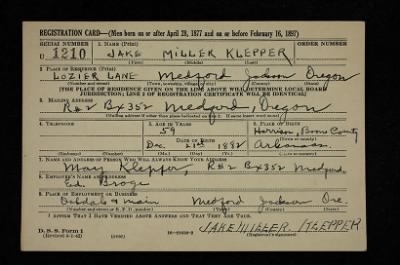 REGISTRATION CARD—(Men born on or after April 28, 1877 and on or before February 16, 1897)
SERIAL NUMBER 1. NAME (Print) ORDER NUMBER
U 1210 JAKE MILLER KLEPPER
(First) (Middle) (Last)
2. PLACE OF RESIDENCE (Print)
LOZIER LANE Medford Jackson Oregon
(Number and street) (Town, township, village, or city) (County) (State)
[THE PLACE OF RESIDENCE GIVEN ON THE LINE ABOVE WILL DETERMINE LOCAL BOARD
JURISDICTION; LINE 2 OF REGISTRATION CERTIFICATE WILL BE IDENTICAL]
3. MAILING ADDRESS
R#2 Bx352 Medford, Oregon
[Mailing address if other than place indicated on line 2. If same insert word same]
4. TELEPHONE 5. AGE IN YEARS 6. PLACE OF BIRTH
59 Harrison, Boone County
DATE OF BIRTH (Town or county)
Dec. 21st 1882 Arkansas.
(Exchange) (Number) (Mo.) (Day) (Yr.) (State or country)
7. NAME AND ADDRESS OF PERSON WHO WILL ALWAYS KNOW YOUR ADDRESS
May Klepper, R#2 Bx352 Medford
8. EMPLOYER'S NAME AND ADDRESS
Ed. Broge
9. PLACE OF EMPLOYMENT OR BUSINESS
Oakdale & Main Medford Jackson Ore.
(Number and street or R. F. D. number) (Town) (County) (State)
I AFFIRM THAT I HAVE VERIFIED ABOVE ANSWERS AND THAT THEY ARE TRUE.
D. S. S. Form 1 JAKE MILLER KLEPPER
(Revised 4-1-42) (Registrant's signature)